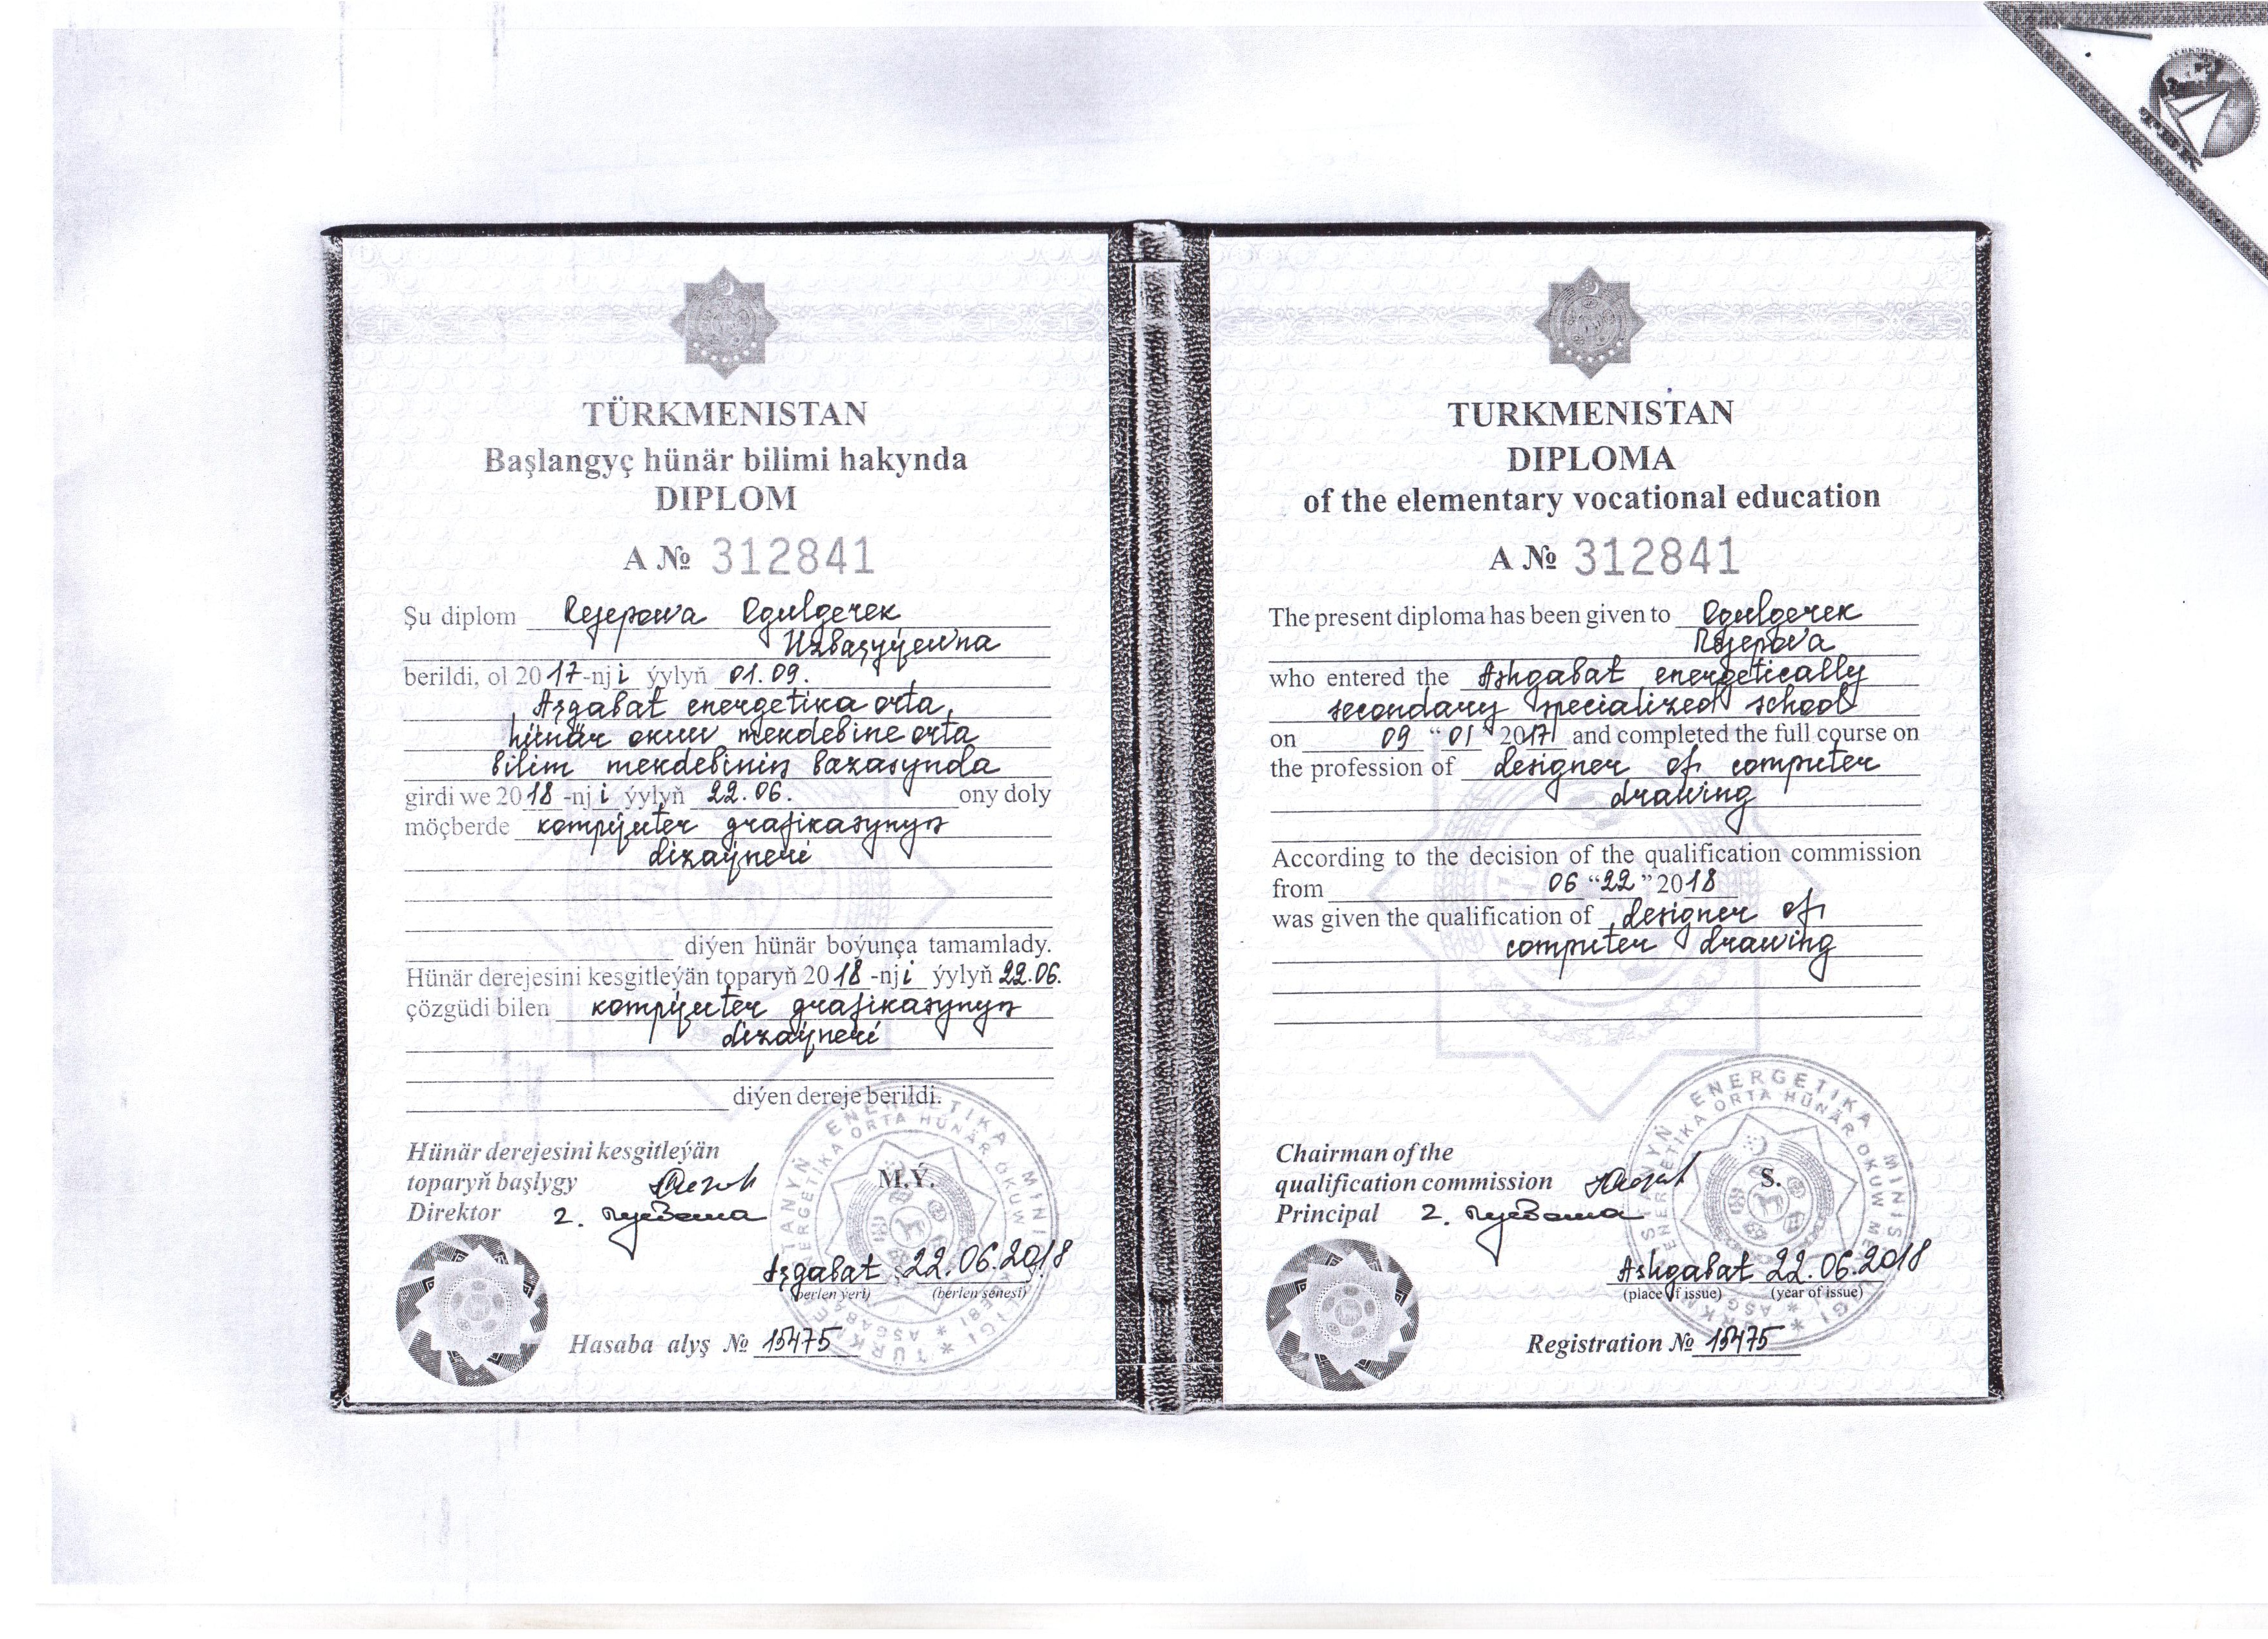 TÜRKMENISTAN
Başlangyç hünär bilimi hakynda
DIPLOM
A № 312841
Şu diplom Rejepowa Ogulgerek
Uzbaşyýewna
berildi, ol 2017-nji ýylyň 01.09.
Aşgabat energetika orta
hünär okuw mekdebine orta
bilim mekdebiniň bazasynda
girdi we 2018-nji ýylyň 22.06. ony doly
möçberde kompýuter grafikasynyň
dizaýneri
diýen hünär boýunça tamamlady.
Hünär derejesini kesgitleýän toparyň 2018-nji ýylyň 22.06.
çözgüdi bilen kompýuter grafikasynyň
dizaýneri
diýen dereje berildi.
Hünär derejesini kesgitleýän
toparyň başlygy
M.Ý.
Direktor
Aşgabat 22.06.2018
(berlen ýeri) (berlen senesi)
Hasaba alyş № 15475
TURKMENISTAN
DIPLOMA
of the elementary vocational education
A № 312841
The present diploma has been given to Ogulgerek
Rejepova
who entered the Ashgabat energetically
secondary specialized school
on 09 “01” 2017 and completed the full course on
the profession of designer of computer
drawing
According to the decision of the qualification commission
from 06 “22” 2018
was given the qualification of designer of
computer drawing
Chairman of the
qualification commission
S.
Principal
Ashgabat 22.06.2018
(place of issue) (year of issue)
Registration № 15475